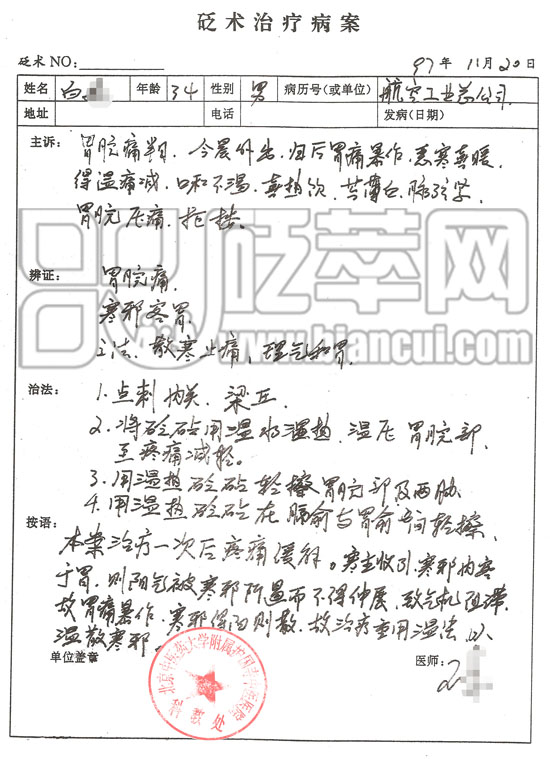 砭术治疗病案
砭术NO: 97年11月20日
姓名 白 年龄 34 性别 男 病历号(或单位) 航空工业总公司
地址 电话 发病(日期)
主诉: 胃脘痛 今晨外出,归后胃痛暴作,恶寒喜暖,
得温痛减,口和不渴,喜热饮,苔薄白,脉弦紧
胃脘压痛,拒按。
辨证: 胃脘痛
寒邪客胃
立法:散寒止痛,理气和胃
治法: 1.点刺内关、梁丘
2.将砭砧用温水温热,温压胃脘部,
至疼痛减轻。
3.用温热砭砧轻擦胃脘部及两胁
4.用温热砭砧在膈俞与胃俞之间轻擦
按语: 本案治疗一次后疼痛缓解。寒主收引,寒邪内客
于胃,则阳气被寒邪所遏而不得伸展,致气机阻滞,
故胃痛暴作,寒邪得阳则散,故治疗重用温法以
温散寒邪。
单位盖章 医师:
北京中医药大学附属
科教处
砭萃网
www.biancui.com